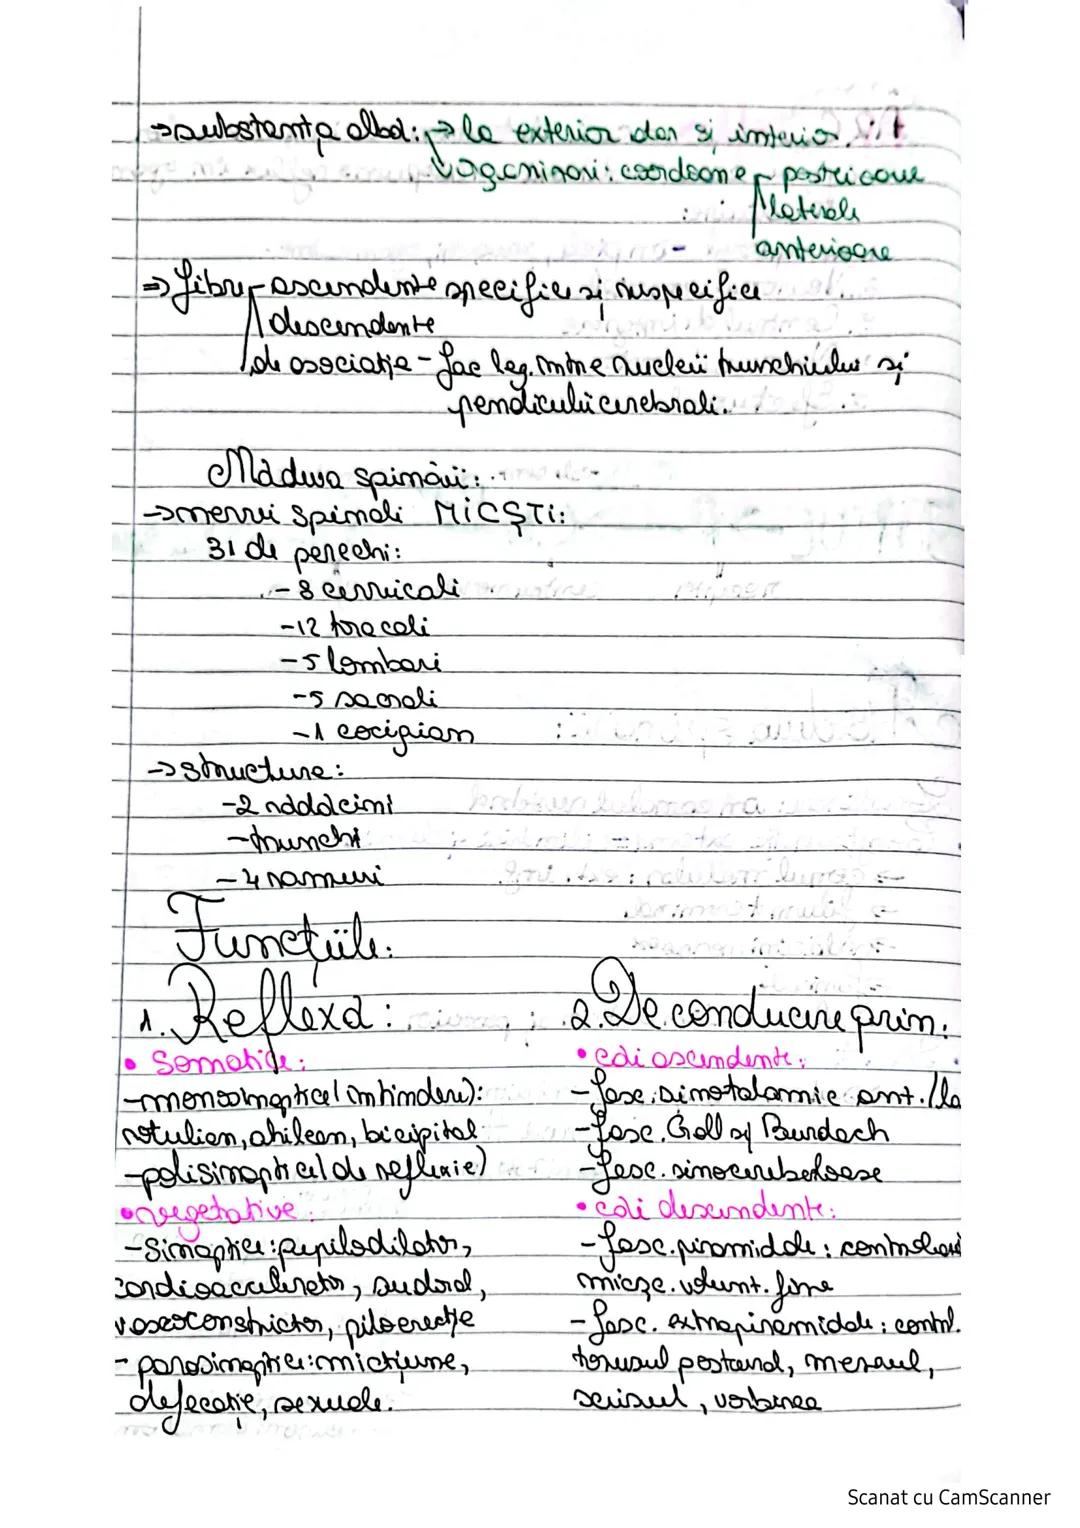 →substanța albă: → la exterior dar și interior.
organizări: cordoane posterioare
laterale
anterioare
⇒ fibre - ascendente specifice și nespecifice
descendente
de asociație - fac leg. între nucleii trunchiului și
pendiculii cerebrali.
Măduva spinării:
→nervii spinali MICȘTi:
31 de perechi:
- 8 cervicali
-12 toracali
-5 lombari
-5 sacrali
-1 cocigian
→structure:
-2 rădăcini
-trunchi
-4 ramuri
Funcțiile:
1. Reflexă:
• Somatice:
-monosinaptice(întindere):
rotulian, ahilean, bicipital
-polisinaptice(de reflexie)
•vegetative:
-Simaptice:pupilodilator,
cardioaccelerator, sudoral,
vasoconstrictor, piloerecție
- parasimaptice:micțiune,
defecație, sexuale.
2. De conducere prin.
• căi ascendente:
- fasc. sinotalamic ant./la
-fasc. Goll și Burdach
-fasc. sinocerebeloase
• căi descendente:
-fasc. piramidale: controlează
mișc. volunt. fine
-fasc. extrapiramidale: control.
tonusul postural, mersul,
scrisul, vorbirea
Scanat cu CamScanner